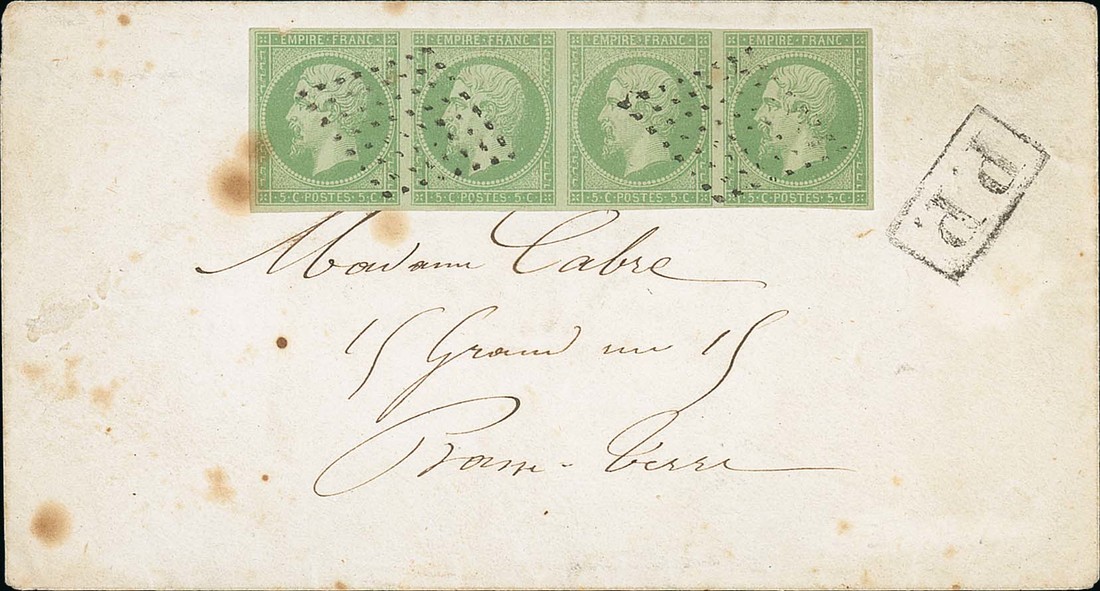 EMPIRE · FRANC · EMPIRE · FRANC · EMPIRE · FRANC · EMPIRE · FRANC ·
· 5 · C · POSTES · 5 · C · · 5 · C · POSTES · 5 · C · · 5 · C · POSTES · 5 · C · · 5 · C · POSTES · 5 · C ·
P.P.
Madame Cabre
15 Grand rue 15
Basse-Terre